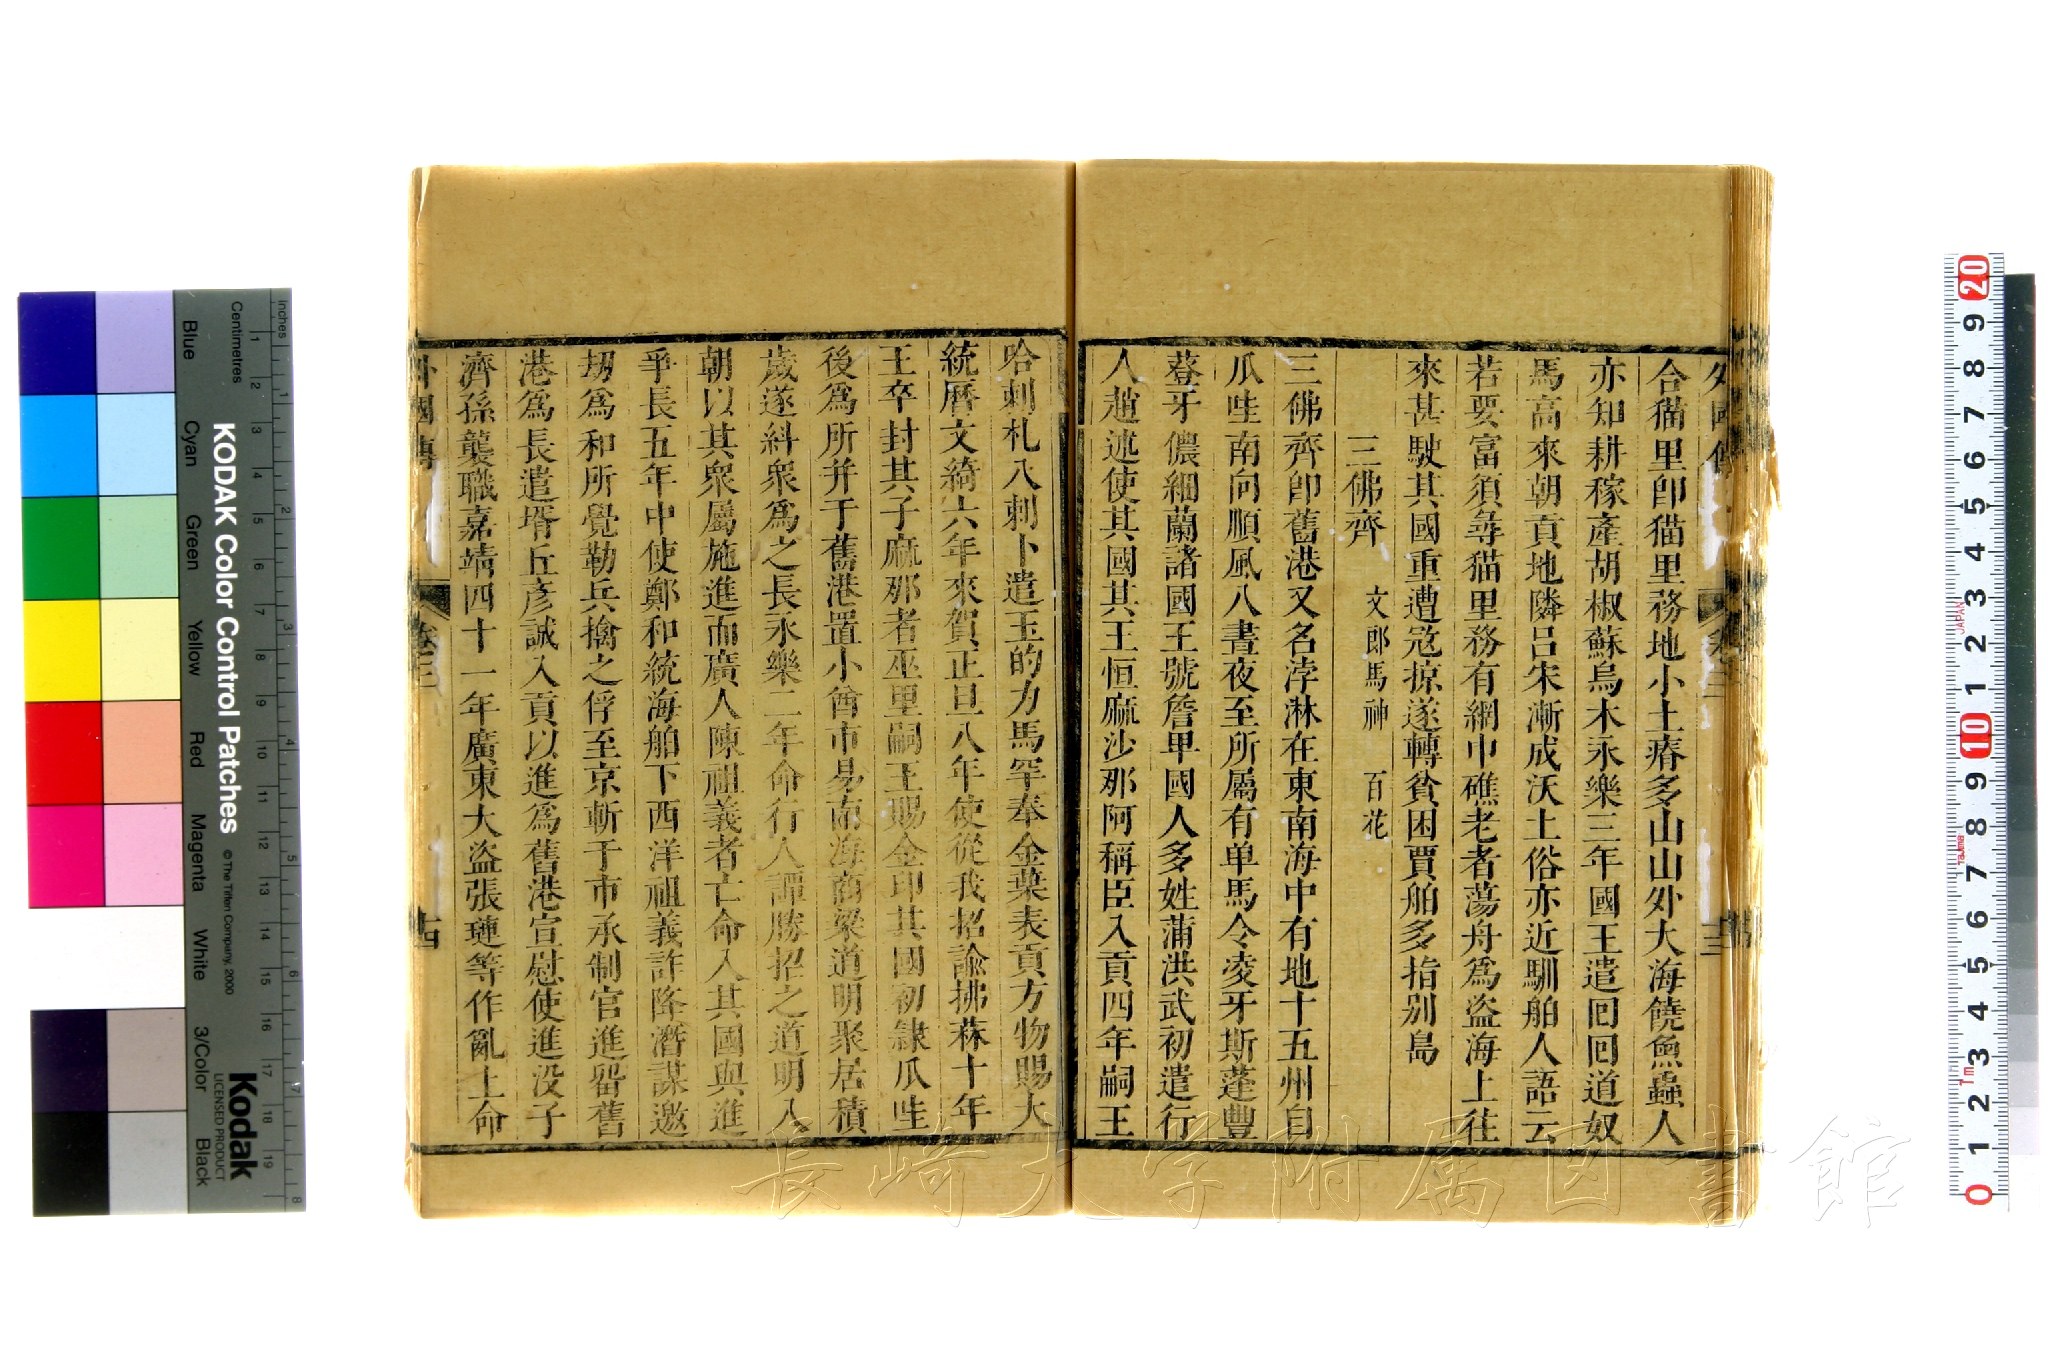 外國傳
卷三
合猫里卽猫里務地小土瘠多山山外大海饒魚蟲人
亦知耕稼產胡椒蘇烏木永樂三年國王遣回回道奴
馬高來朝貢地隣呂宋漸成沃土俗亦近馴舶人語云
若要富須尋猫里務有網巾礁老者蕩舟爲盜海上往
來甚駛其國重遭寇掠遂轉貧困賈舶多指别島
三佛齊 文郎馬神 百花
三佛齊卽舊港又名浡淋在東南海中有地十五州自
瓜哇南向順風八晝夜至所屬有单馬令凌牙斯蓬豐
登牙儂細蘭諸國王號詹卑國人多姓蒲洪武初遣行
人趙述使其國其王恒麻沙那阿稱臣入貢四年嗣王
哈剌札八剌卜遣玉的力馬罕奉金葉表貢方物賜大
統曆文綺六年來賀正旦八年使從我招諭拂菻十年
王卒封其子麻那者巫里嗣王賜金印其國初隷瓜哇
後爲所并于舊港置小酋市易南海商梁道明聚居積
歲遂糾衆爲之長永樂二年命行人譚勝招之道明入
朝以其衆屬施進而廣人陳祖義者亡命入其國與進
爭長五年中使鄭和統海舶下西洋祖義許降潛謀邀
刼爲和所覺勒兵擒之俘至京斬于市承制官進畱舊
港爲長遣壻丘彦誠入貢以進爲舊港宣慰使進没子
濟孫襲職嘉靖四十一年廣東大盜張璉等作亂上命
外國傳
卷三
十四
長崎大学附属図書館
KODAK Color Control Patches
© The Tiffen Company, 2000
Kodak
LICENSED PRODUCT
Centimetres
inches
Blue
Cyan
Green
Yellow
Red
Magenta
White
3/Color
Black
JAPAN
Tajima
1m